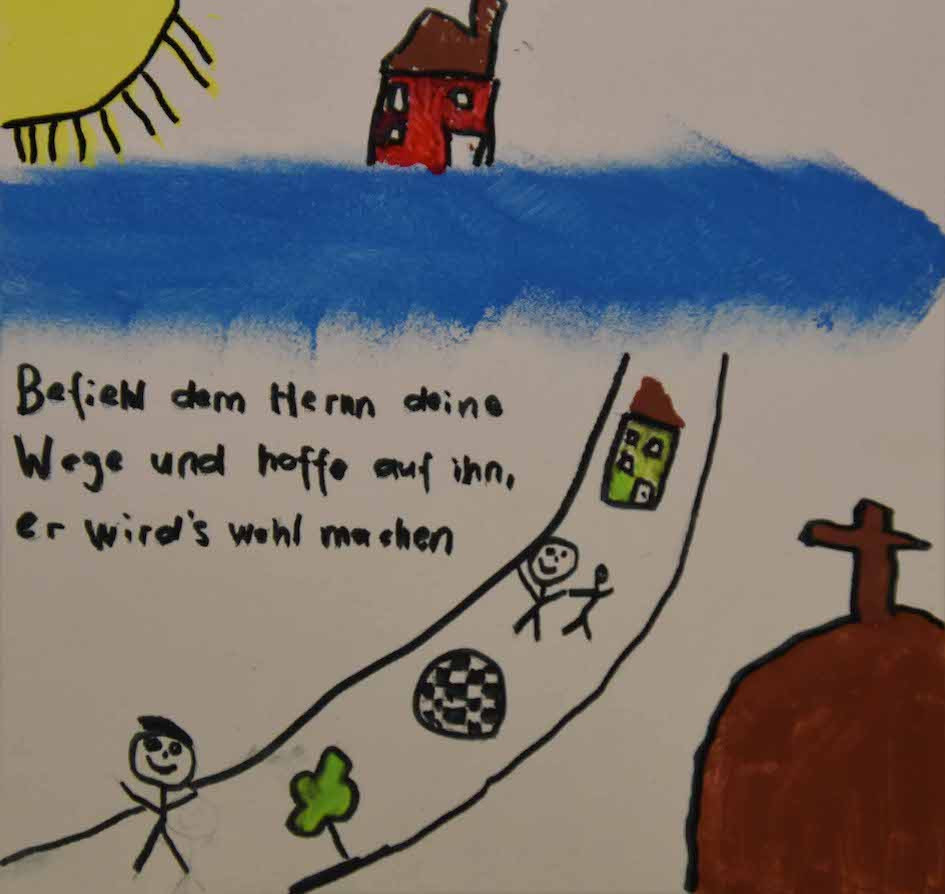 Befiehl dem Herrn deine
Wege und hoffe auf ihn,
er wird's wohl machen